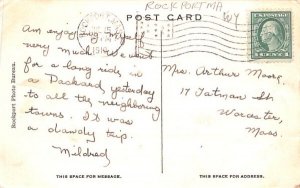 ROCKPORT MA
WY
POST CARD
Am enjoying myself
very much. We went
for a long ride in
a Packard yesterday
to all the neighboring
towns. It was
a dandy trip.
Mildred
Mrs. Arthur Moore,
17 Tatman St
Worcester,
Mass.
Rockport Photo Bureau.
THIS SPACE FOR MESSAGE.
THIS SPACE FOR ADDRESS.